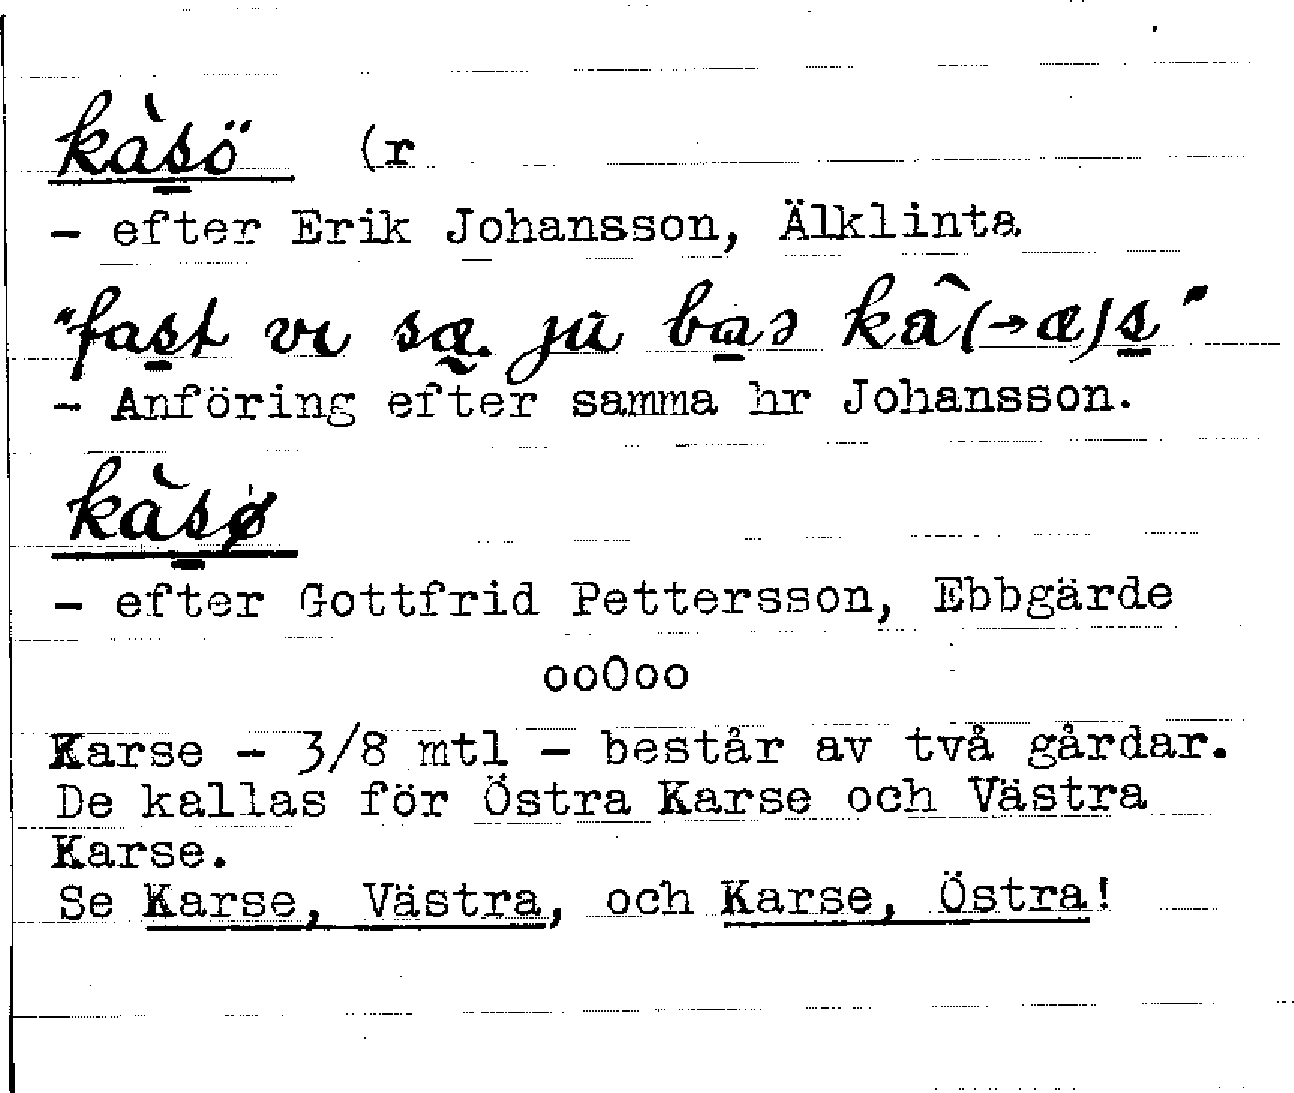 kàsö (r
- efter Erik Johansson, Älklinta
"fast vi sæ. ju bas kâ(→æ)s"
- Anföring efter samma hr Johansson.
kàsø
- efter Gottfrid Pettersson, Ebbgärde
ooOoo
Karse - 3/8 mtl - består av två gårdar.
De kallas för Östra Karse och Västra
Karse.
Se Karse, Västra, och Karse, Östra!